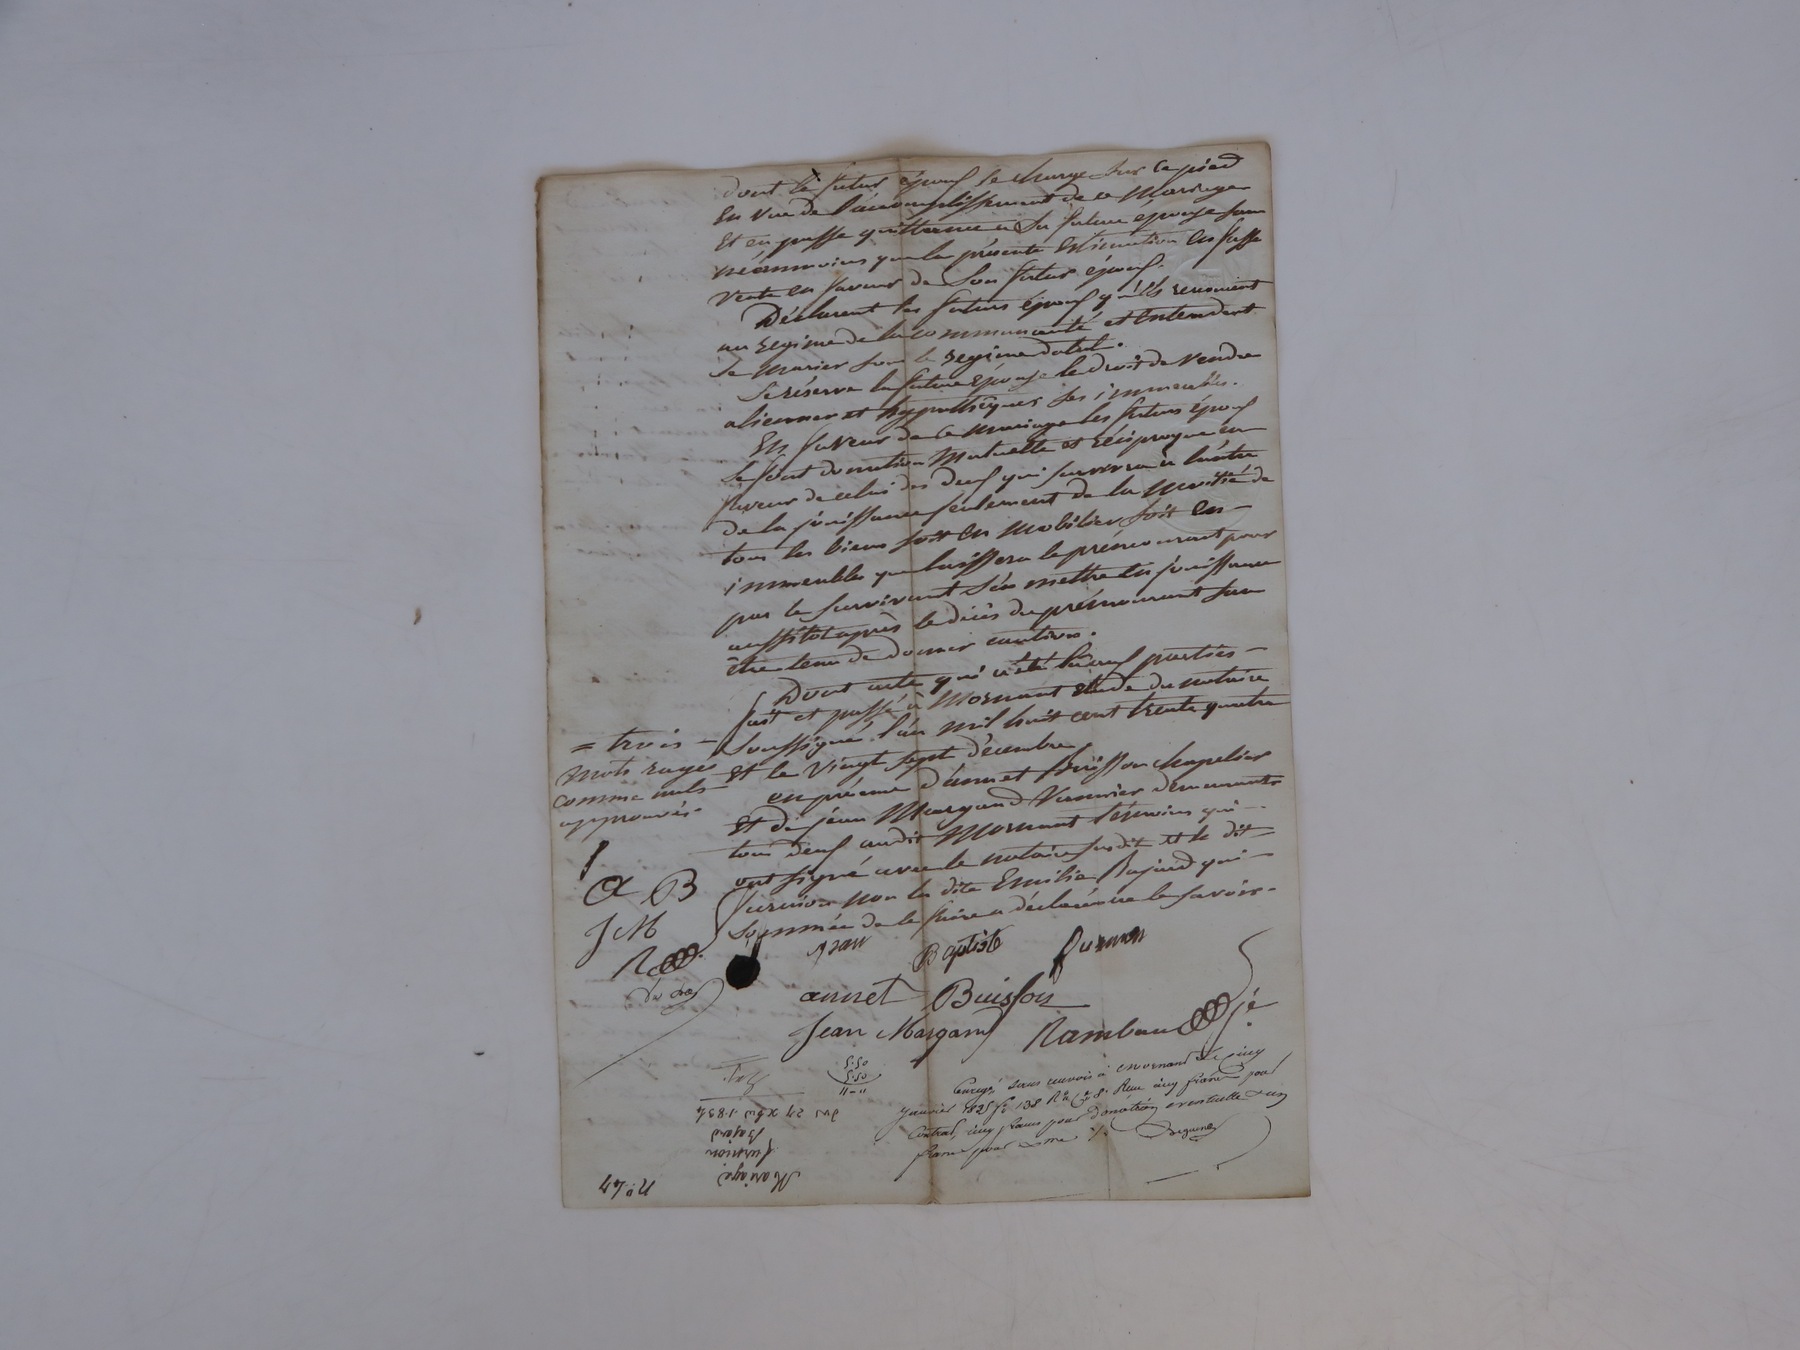 dont le futur époux se charge sur ce pied
En vue de l'accomplissement de ce Mariage
Et en passe quittance à sa future épouse sans
néanmoins que la présente Estimation En fasse
Vente en faveur de Son futur époux.
Déclarent les futurs époux qu'ils renoncent
au regime de la communauté et Entendent
Se Marier sous le regime dotal.
Se réserve la future Epouse le droit de Vendre
aliener et hypothéquer ses immeubles.
En faveur de ce Mariage les futurs époux
Se font donation Mutuelle et réciproque en
faveur de celui des deux qui survivra à l'autre
de la jouissance seulement de la Moitié de
tous les biens soit En Mobilier soit En
immeubles que laissera le prémourant pour
par le survivant s'en mettre En jouissance
aussitot après le décès du prémourant sans
être tenu de donner caution.
Dont acte qui a été lu aux parties
fait et passé à Mornant étude du notaire
soussigné l'an mil huit cent trente quatre
Et le Vingt sept décembre
en présence d'annet Buisson chapelier
Et de jean Margand Vannier demeurants
tous deux audit Mornant témoins qui
ont signé avec le notaire susdit et le dit
non la dite Emilie Bajard qui
sommée de le faire a déclaré ne le savoir
= trois
mots rayés
comme nuls
approuvés
A B
J M
R
Jean Baptiste
annet Buisson
Jean Margand Rambaud
Enregé sans renvois à Mornant le cinq
janvier 1835 fo 138 Ro Ce 8. Reçu cinq francs pour
Contrat, cinq francs pour donation eventuelle & un
franc pour
5.50
5.50
11-"
Du 27 xbre 1834
Bajard
Mariage
No 47